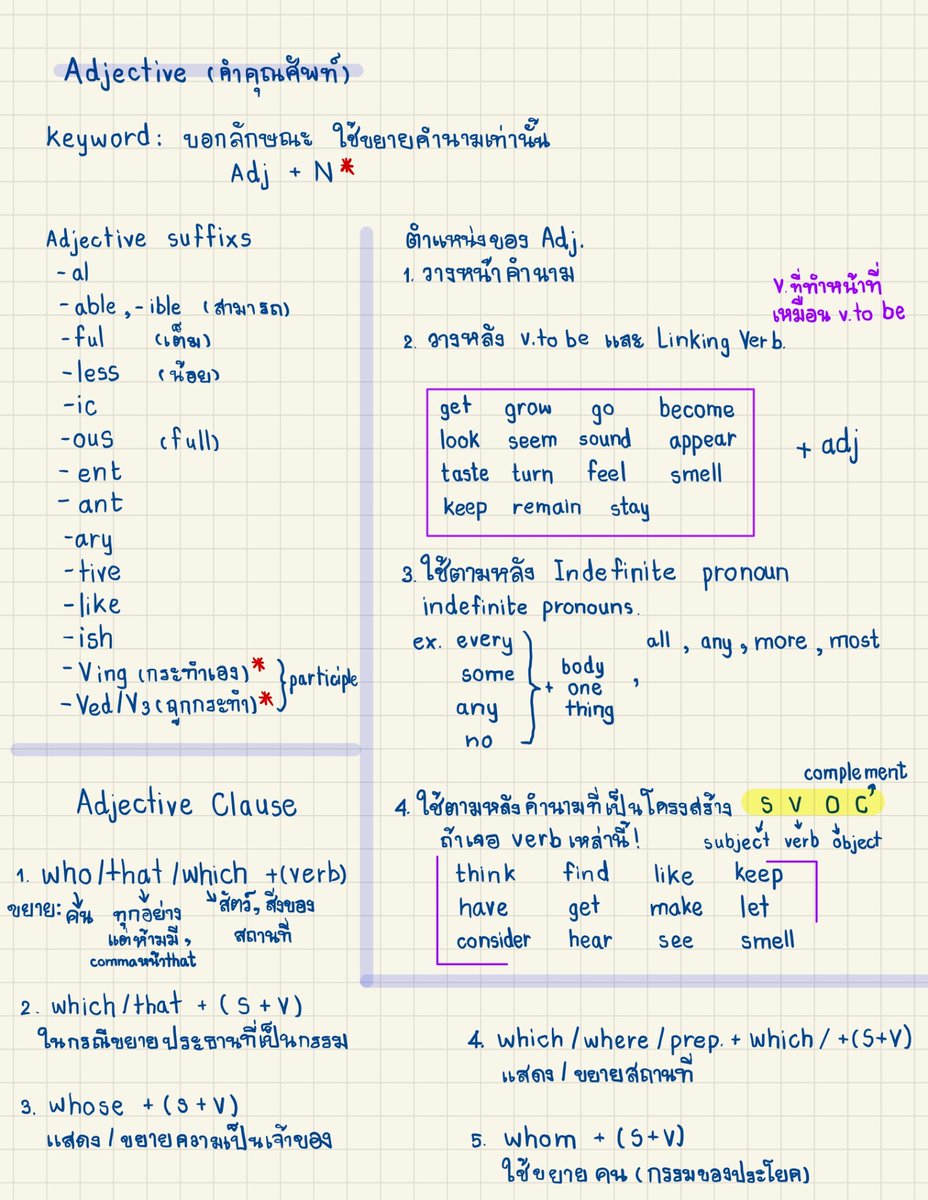 Adjective (คำคุณศัพท์)
keyword: บอกลักษณะ ใช้ขยายคำนามเท่านั้น
Adj + N*
Adjective suffixs
-al
-able, -ible (สามารถ)
-ful (เต็ม)
-less (น้อย)
-ic
-ous (full)
-ent
-ant
-ary
-tive
-like
-ish
-Ving (กระทำเอง)*
-Ved/V3 (ถูกกระทำ)*
} participle
ตำแหน่งของ Adj.
1. วางหน้าคำนาม
v.ที่ทำหน้าที่
เหมือน v.to be
2. วางหลัง v.to be และ Linking Verb.
get grow go become
look seem sound appear
taste turn feel smell
keep remain stay
+ adj
3. ใช้ตามหลัง Indefinite pronoun
indefinite pronouns.
ex. every
some
any
no
+ body
one
thing
, all , any , more , most
complement
4. ใช้ตามหลังคำนามที่เป็นโครงสร้าง S V O C
ถ้าเจอ verb เหล่านี้! subject verb object
think find like keep
have get make let
consider hear see smell
Adjective Clause
1. who/that/which +(verb)
ขยาย: คน ทุกอย่าง สัตว์, สิ่งของ
แต่ห้ามมี , สถานที่
commaหน้าthat
2. which/that + (S+V)
ในกรณีขยายประธานที่เป็นกรรม
3. whose + (S+V)
แสดง/ขยายความเป็นเจ้าของ
4. which/where/prep. + which/ +(S+V)
แสดง/ขยายสถานที่
5. whom + (S+V)
ใช้ขยาย คน (กรรมของประโยค)